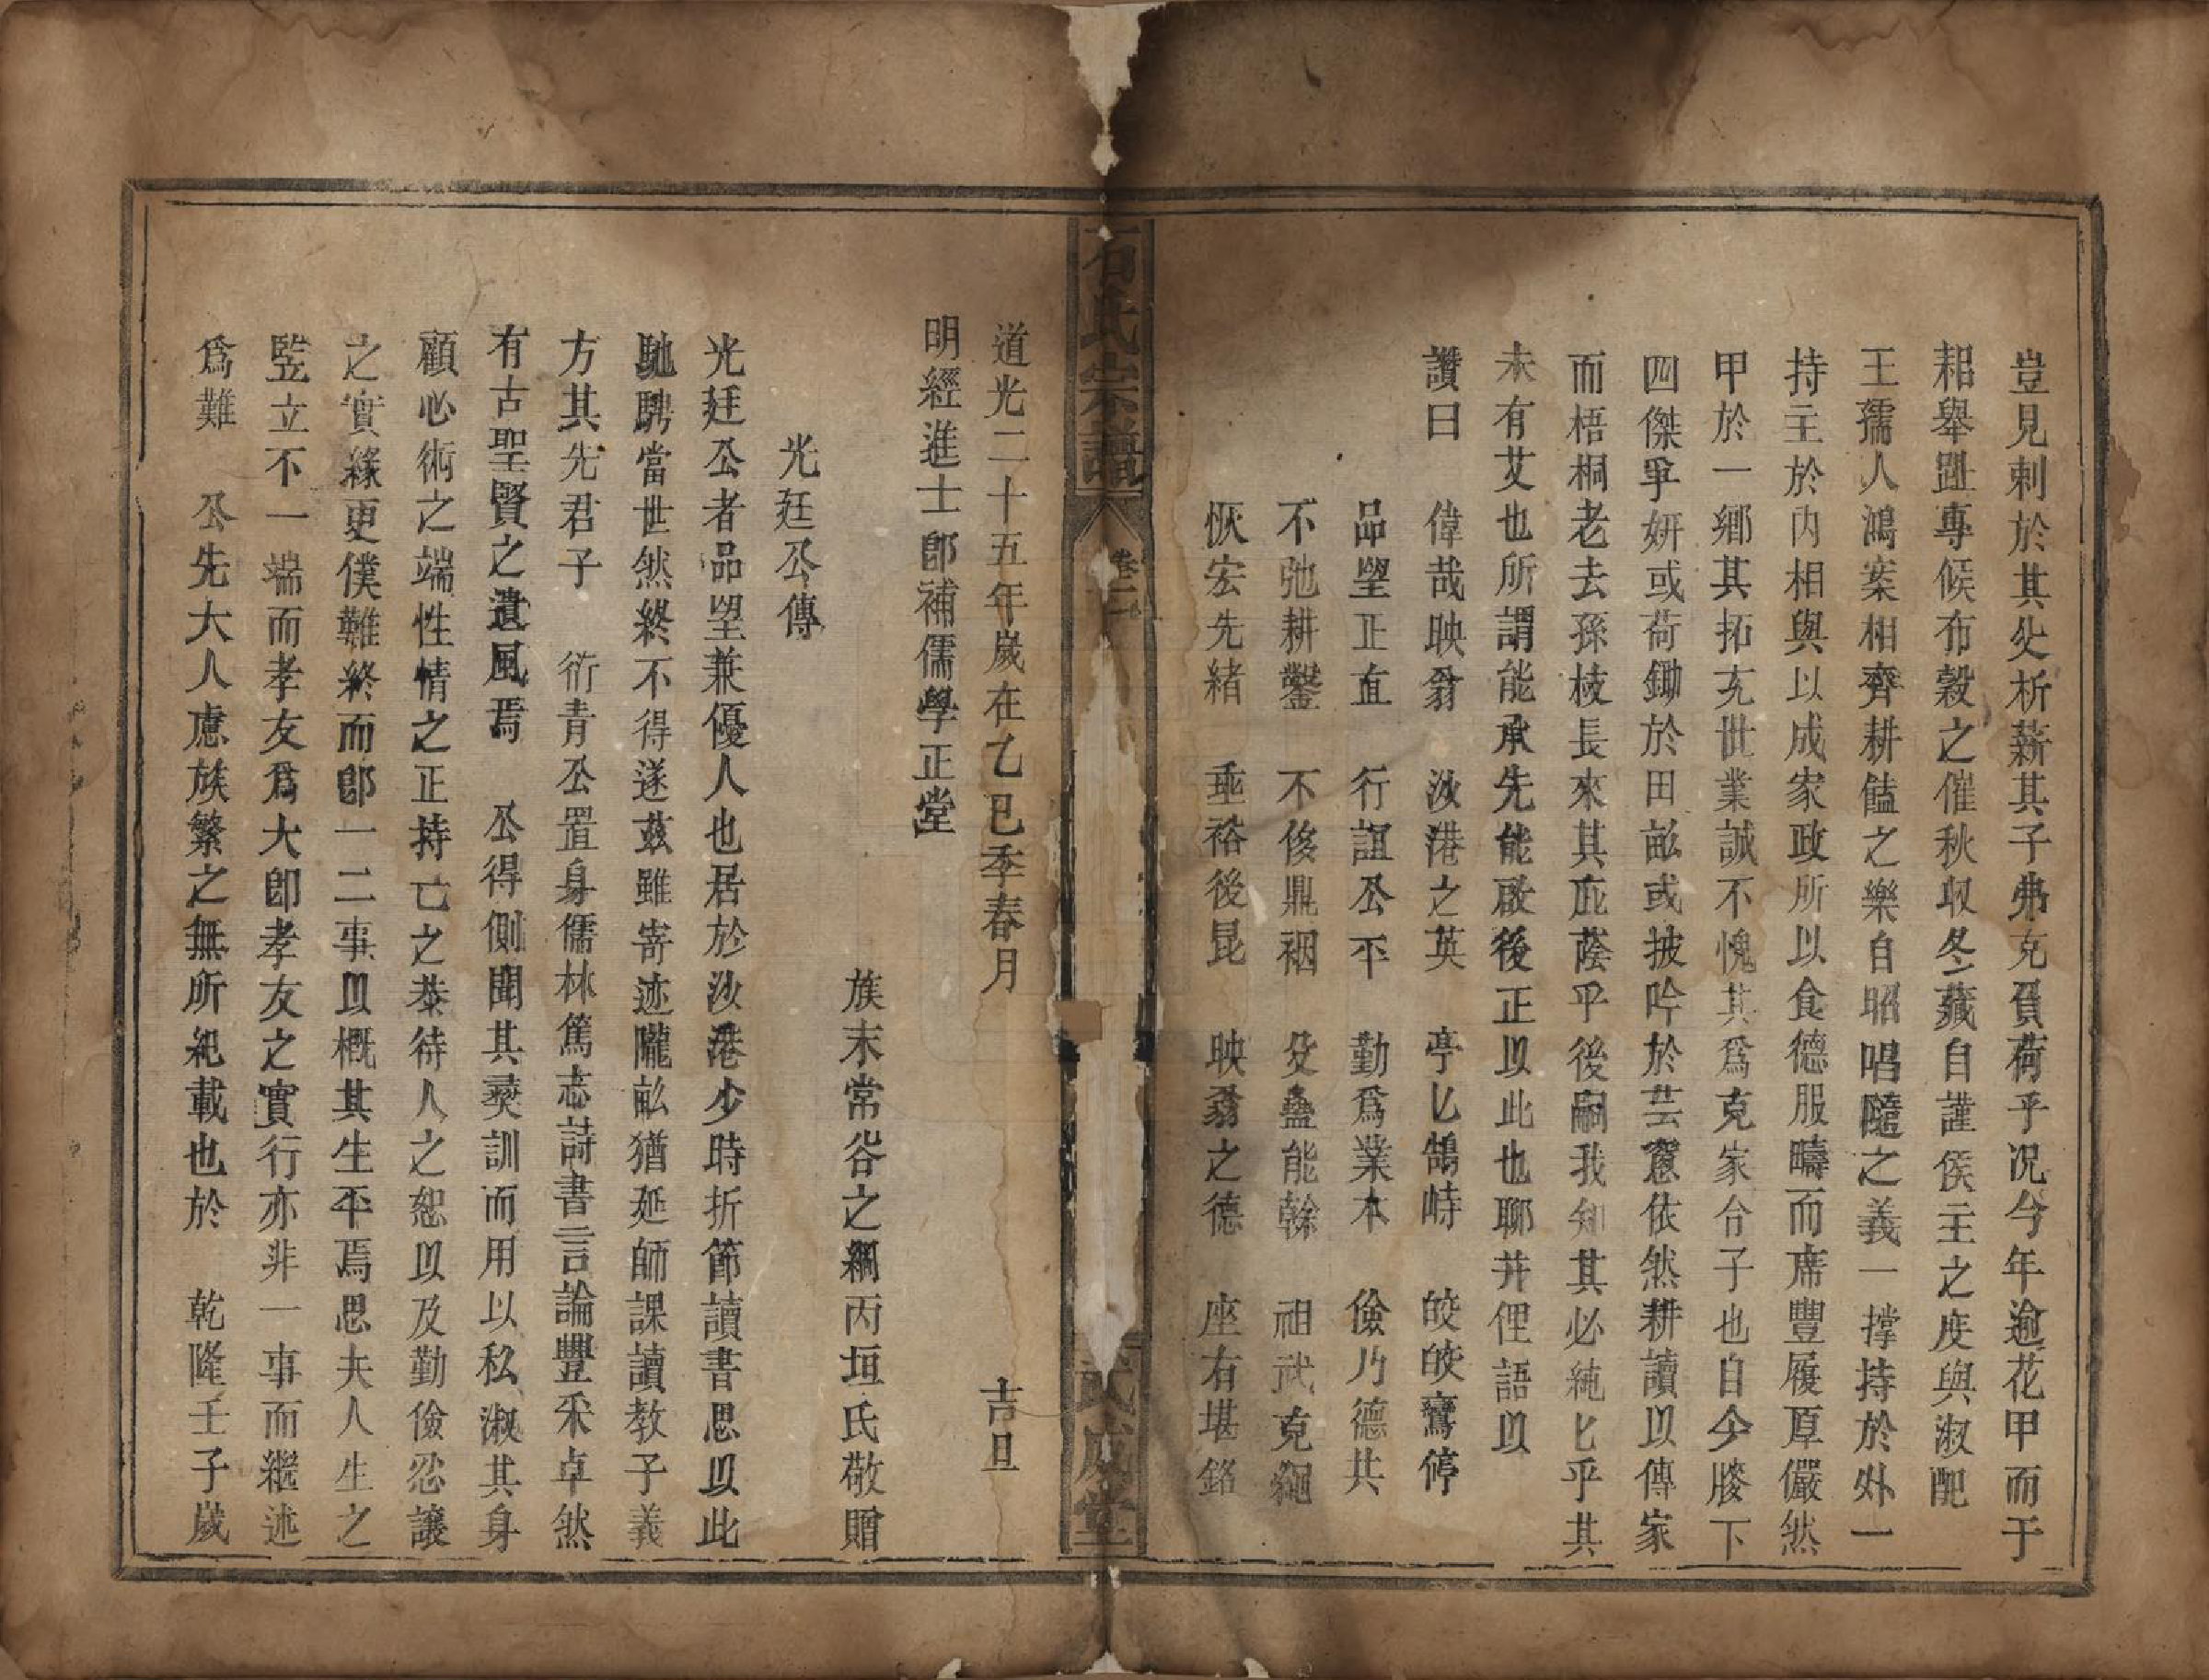 豈見刺於其父析薪其子弗克負荷乎况今年逾花甲而于
耜舉趾專候布穀之催秋収冬藏自謹侯主之度與淑配
王孺人鴻案相齊耕饁之樂自昭唱隨之義一撑持於外一
持主於内相與以成家政所以食德服疇而席豐履厚儼然
甲於一鄉其拓充世業誠不愧其爲克家令子也自今膝下
四傑爭妍或荷鋤於田畝或披吟於芸窻依然耕讀以傳家
而梧桐老去孫枝長來其庇蔭乎後嗣我知其必純匕乎其
未有艾也所謂能承先能啟後正以此也聊幷俚語以
讚曰　偉哉映翁　汝港之英　亭匕鵠峙　皎皎鸞停
品望正直　行誼公平　勤爲業本　儉乃德共
不弛耕鑿　不俊鼎裀　殳蠱能幹　祖武克繩
恢宏先緒　垂裕後昆　映翁之德　座右堪銘
石氏宗譜　卷二　武威堂
道光二十五年歲在乙巳季春月　吉旦
明經進士卽補儒學正堂
族末常谷之綱丙垣氏敬贈
光廷公傳
光廷公者品望兼優人也居於汝港少時折節讀書思以此
馳騁當世然終不得遂茲雖寄迹隴畝猶延師課讀教子義
方其先君子　衍青公置身儒林篤志詩書言論豐采卓然
有古聖賢之遺風焉　公得側聞其彛訓而用以私淑其身
顧心術之端性情之正持亡之恭待人之恕以及勤儉忍讓
之實緣更僕難終而卽一二事以概其生平焉思夫人生之
竪立不一端而孝友爲大卽孝友之實行亦非一事而繼述
爲難　公先大人慮族繁之無所紀載也於　乾隆壬子歲